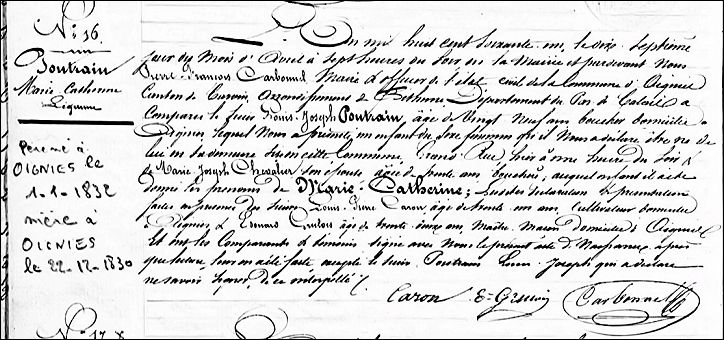 N.º 16
Poutrain
Marie Catherine
Légitime
père né à
OIGNIES le
1-1-1832
mère à
OIGNIES
le 22-12-1830
L'an mil huit cent soixante un, le dix septième
jour du Mois d'Avril à sept heures du soir en la Mairie et pardevant Nous
Pierre François Carbonnel Maire d'officier de l'état civil de la Commune d'Oignies
Canton de Carvin, Arrondissement de Béthune, Département du Pas de Calais, a
Comparu le sieur Louis Joseph Poutrain, âgé de Vingt Neuf ans boucher domicilié à
Oignies, lequel Nous a présenté un enfant du sexe féminin qu'il Nous a déclaré être né de
lui en sa demeure sise en cette Commune, Grand'Rue, hier à heure du soir &
de Marie Joseph Chevalier son épouse âgée de trente ans, auquel enfant il a été
donné les prénoms de Marie-Catherine; Lesdites déclaration & présentation
faites en présence des sieurs Louis Caron âgé de trente un ans, Cultivateur domicilié
à Oignies & Edouard âgé de trente ans Maître Maçon domicilié à Oignies
Et ont les Comparants & témoins signé avec Nous le présent acte de Naissance, après
que lecture leur en a été faite excepté le sieur Poutrain Louis Joseph qui a déclaré
ne savoir signer, de ce interpellé
Caron
Carbonnel
N.º 17